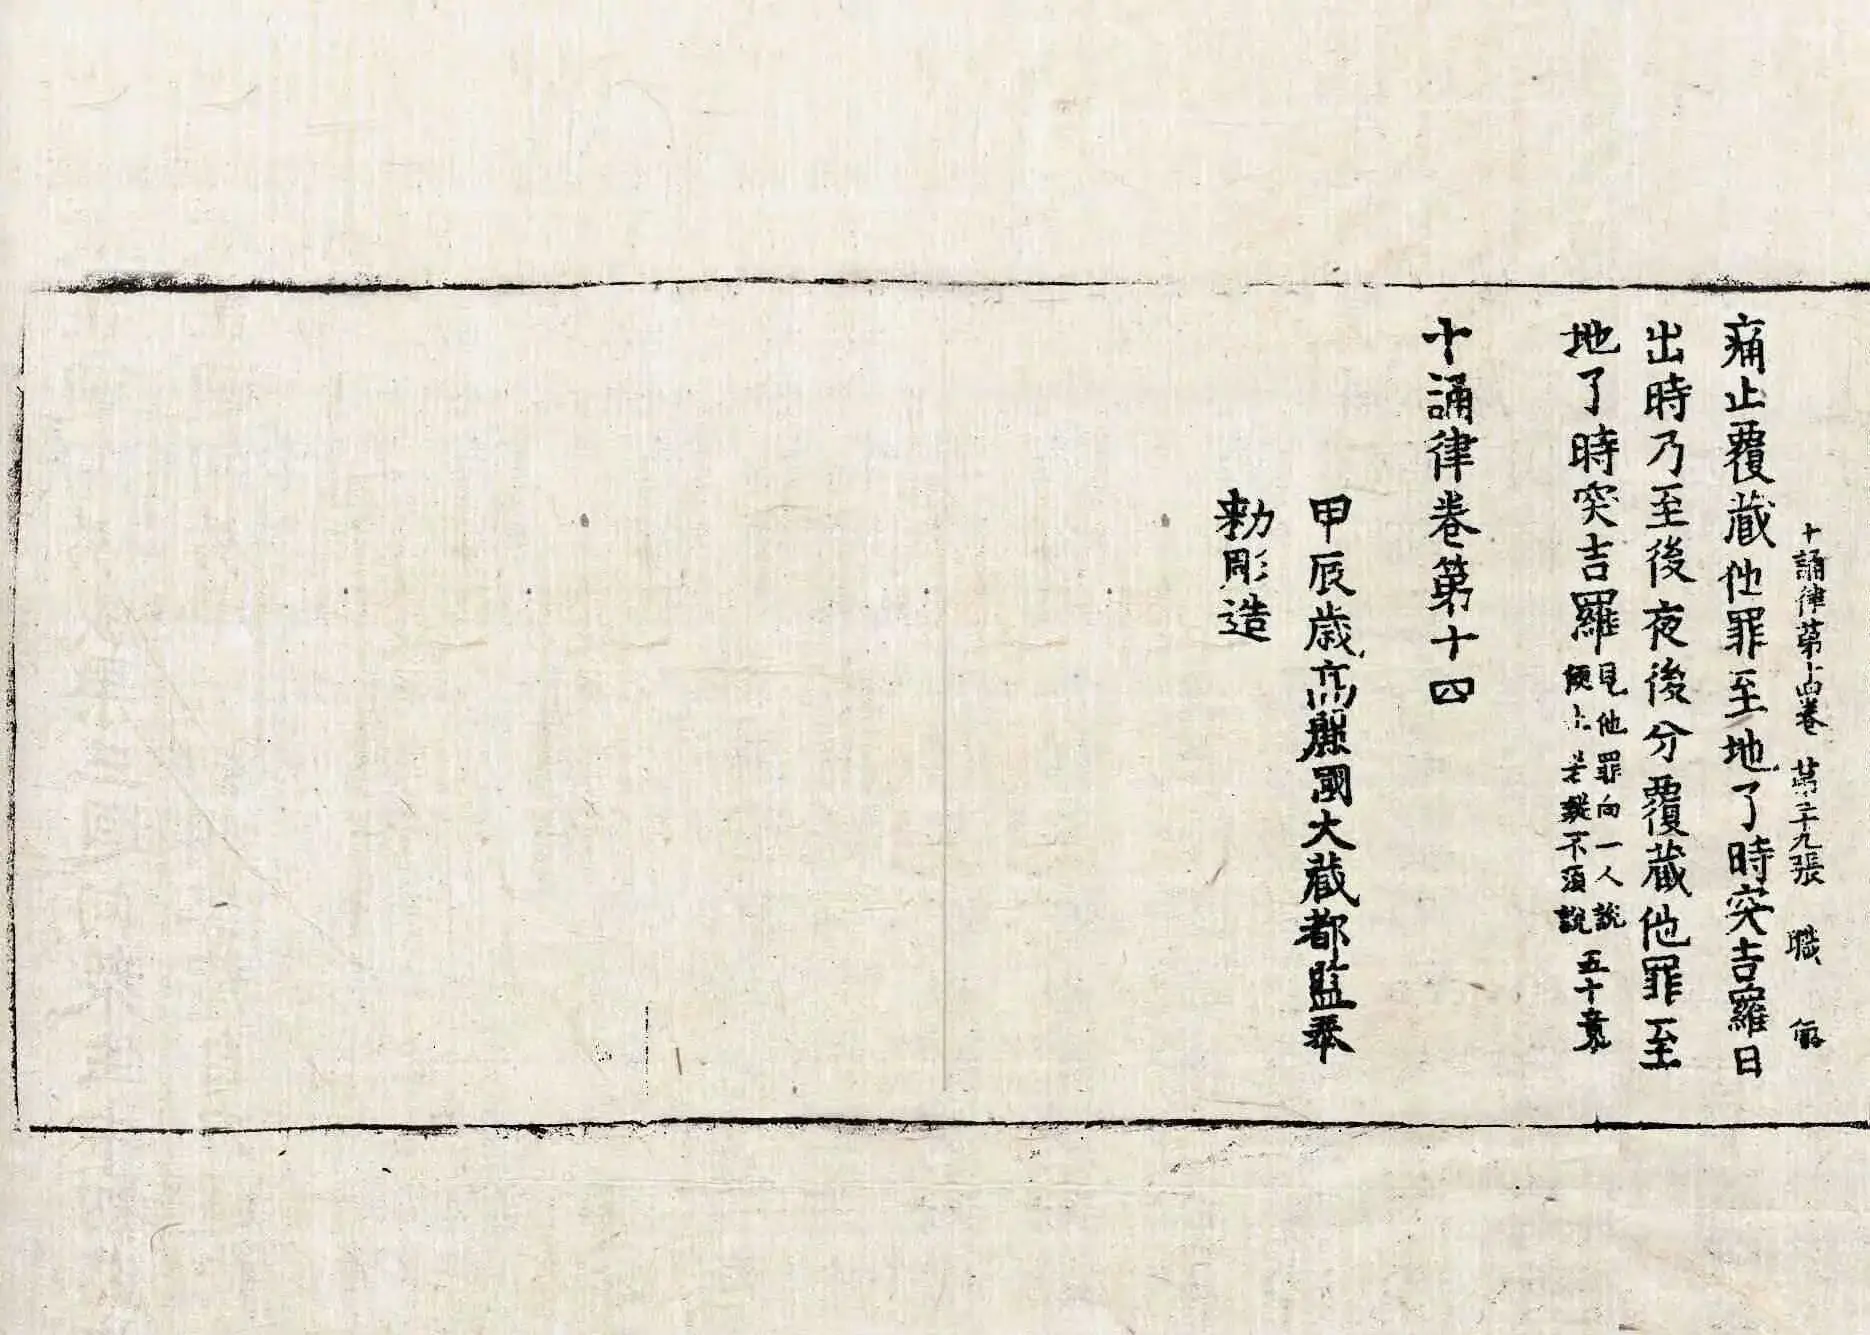 十誦律第十四卷 第二十九張 職
痛止覆藏他罪至地了時突吉羅日
出時乃至後夜後分覆藏他罪至
地了時突吉羅見他罪向一人說
便止若疑不須說五十竟
十誦律卷第十四
甲辰歲高麗國大藏都監奉
勅彫造